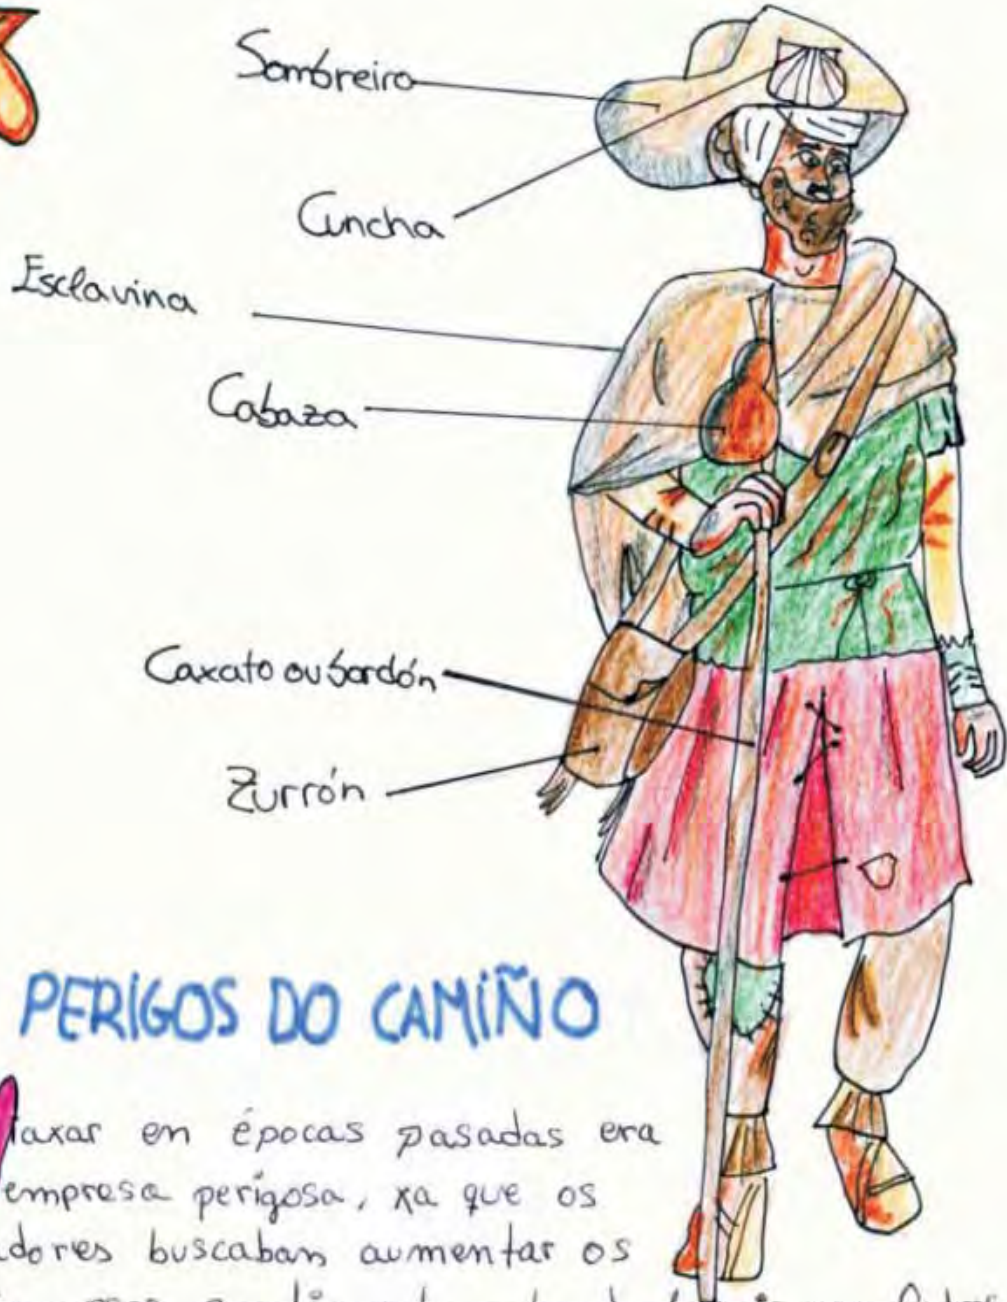 Sombreiro
Cuncha
Esclavina
Cabaza
Caxato ou bordón
Zurrón
PERIGOS DO CAMIÑO
iaxar en épocas pasadas era
empresa perigosa, xa que os
dores buscaban aumentar os